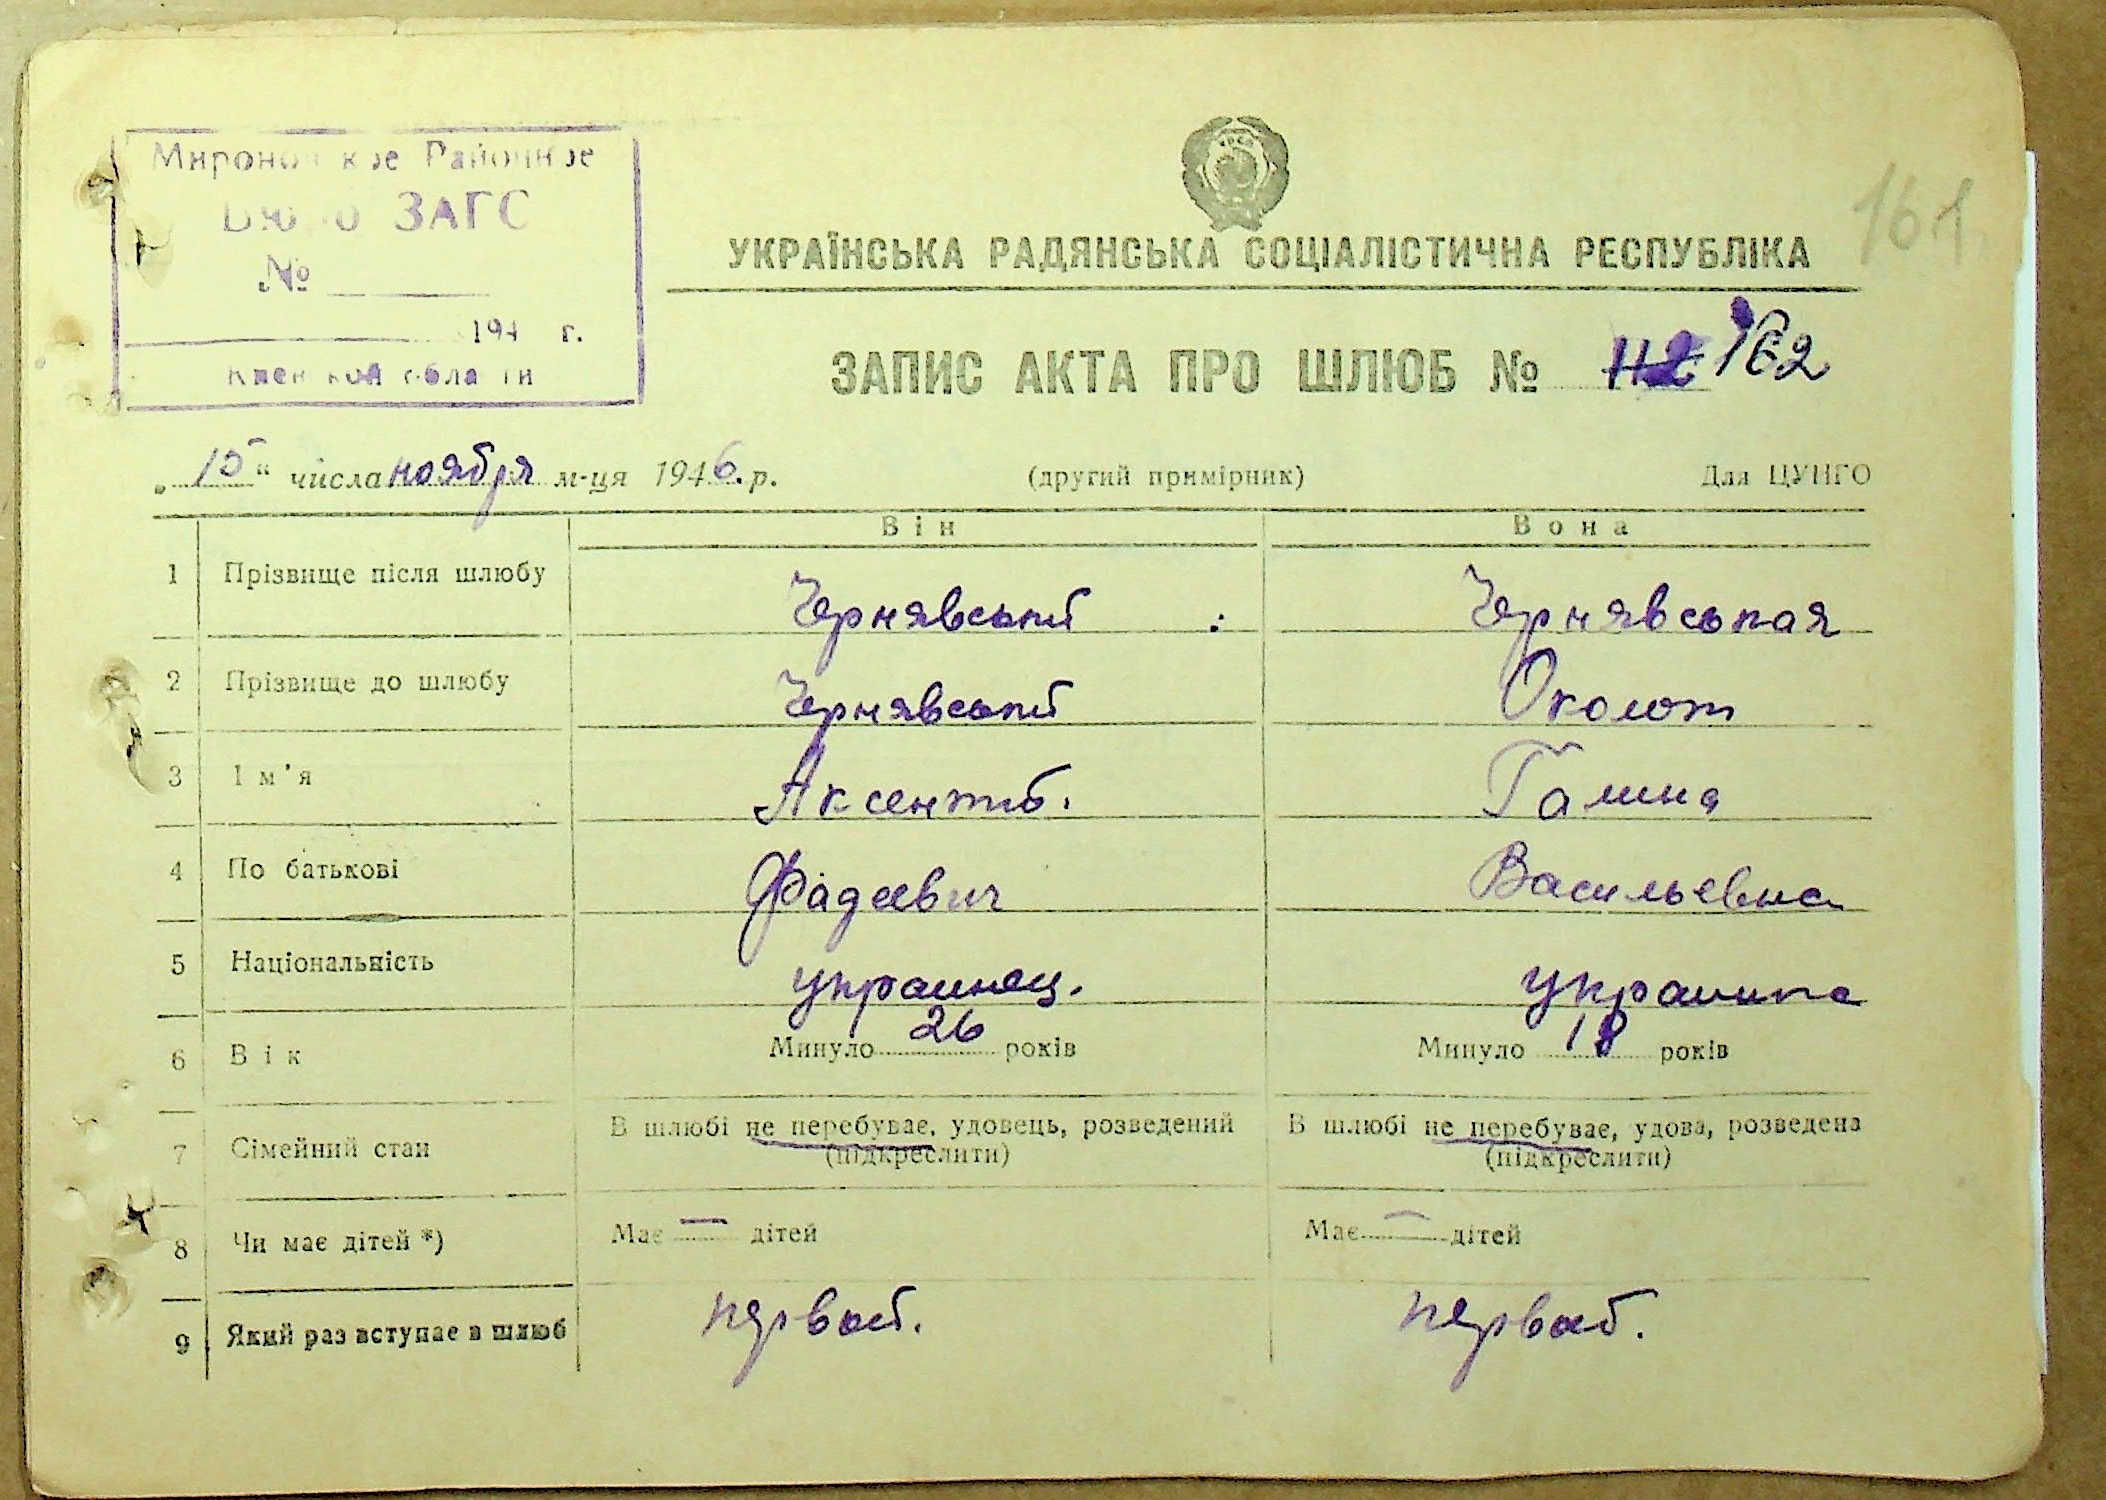 Мироновское Районное
Бюро ЗАГС
№
194 г.
Киевской области
161
УКРАЇНСЬКА РАДЯНСЬКА СОЦІАЛІСТИЧНА РЕСПУБЛІКА
ЗАПИС АКТА ПРО ШЛЮБ № 112 162
„15“ числа ноября м-ця 1946. р. (другий примірник) Для ЦУНГО
Він Вона
1 Прізвище після шлюбу Чернявський Чернявськая
2 Прізвище до шлюбу Чернявський Околот
3 Ім'я Аксентий. Галина
4 По батькові Фадеевич Васильевна
5 Національність украинец. украинка
6 Вік Минуло 26 років Минуло 18 років
7 Сімейний стан В шлюбі не перебуває, удовець, розведений В шлюбі не перебуває, удова, розведена
(підкреслити) (підкреслити)
8 Чи має дітей *) Має — дітей Має — дітей
9 Який раз вступає в шлюб первый. первый.